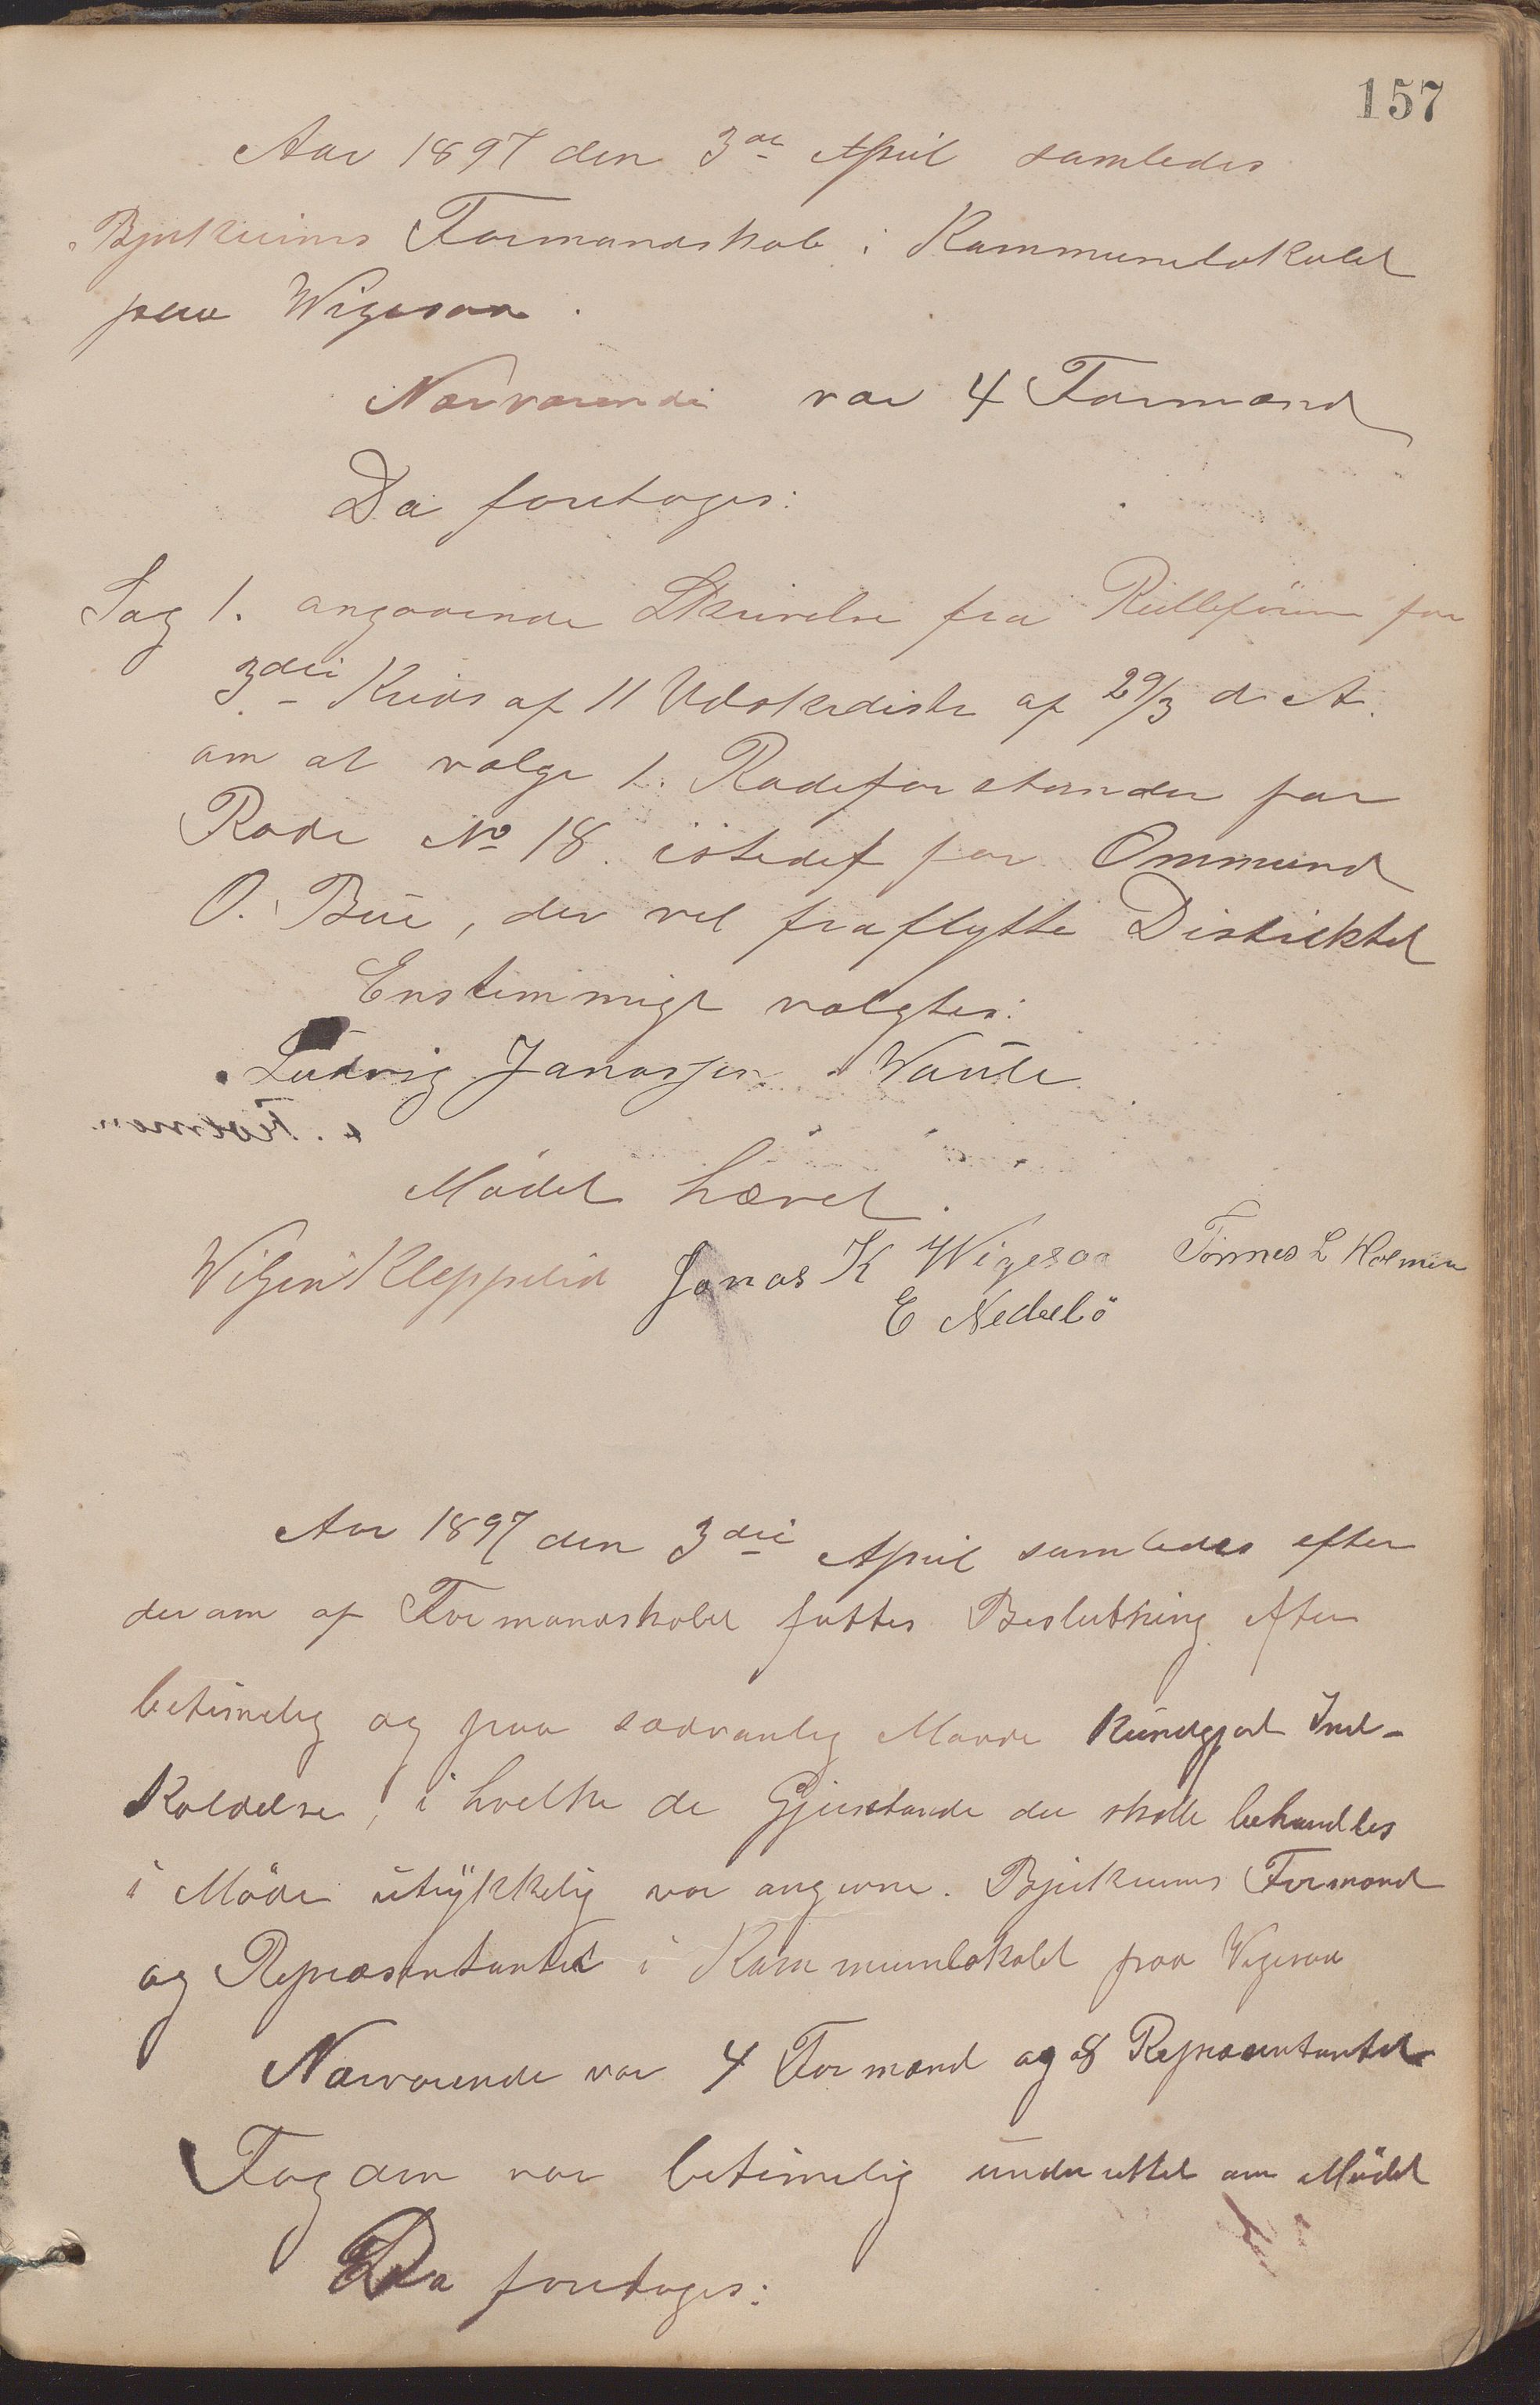 157
Aar 1897 den 3die April samledes
Bjerkreims Formandskab i Kommunelokalet
paa Wigesaa.
Nærværende var 4 Formænd
Da foretoges:
Sag 1. angaaende Skrivelse fra Rulleförer for
3die Kreds af 11 Udskrdistr af 29/3 d. A.
om at vælge 1. Rodeforstander for
Rode No 18. istedet for Ommund
O. Bue, der vil fraflytte Distriktet
Enstemmigt valgtes:
Ludvig Janassen
Mödet hævet.
Jonas K Wigesaa Tönnes L Holmen
E Nedrebö
Aar 1897 den 3die April samledes efter
derom af Formandskabet fattes Beslutning efter
betimelig og paa sædvanlig Maade kundgjort Ind-
kaldelse, i hvilke de Gjenstande der skulle behandles
i Möde utrykkelig var angivne. Bjerkreims Formænd
og Repræsentanter i Kommunelokalet paa Vigesaa
Nærværende var 4 Formænd og 8 Repræsentanter
Fogden var betimelig underrettet om Mödet
Da foretoges: